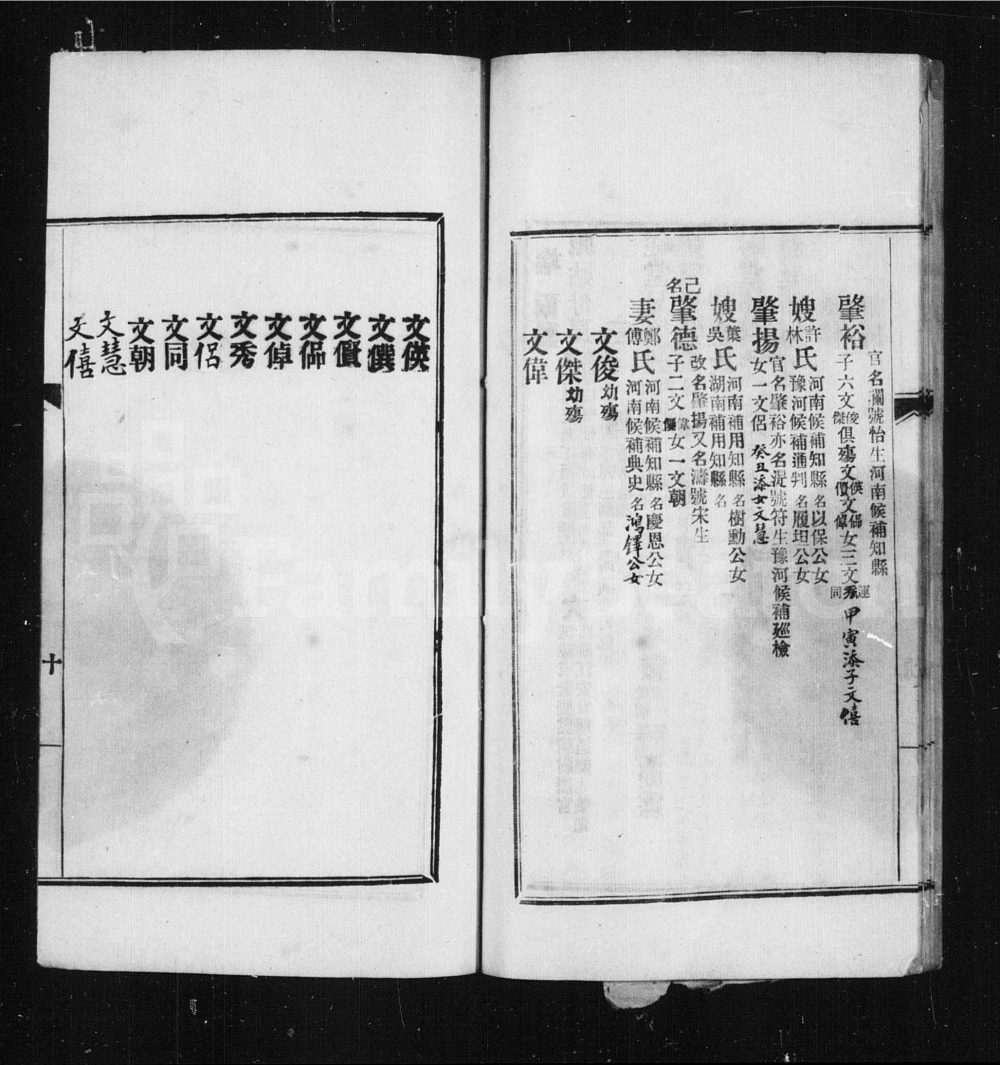 官名瀾號怡生河南候補知縣
肇裕子六文俊傑俱殤文偀儥文偒倬女三文運秀同甲寅添子文僖
嫂許林氏河南候補知縣名以保公女豫河候補通判名履坦公女
官名肇裕亦名湜號符生豫河候補廵檢
肇揚女一文侶癸丑添女文慧
嫂龔吳氏河南補用知縣名樹勳公女湖南補用知縣名
改名肇揚又名濤號宋生
己名肇德子二文偉僎女一文朝
妻鄭傅氏河南候補知縣名慶恩公女河南候補典史名鴻鐸公女
文俊幼殤
文傑幼殤
文偉
文偀
文僎
文儥
文倬
文秀
文侶
文同
文朝
文慧
文僖
十